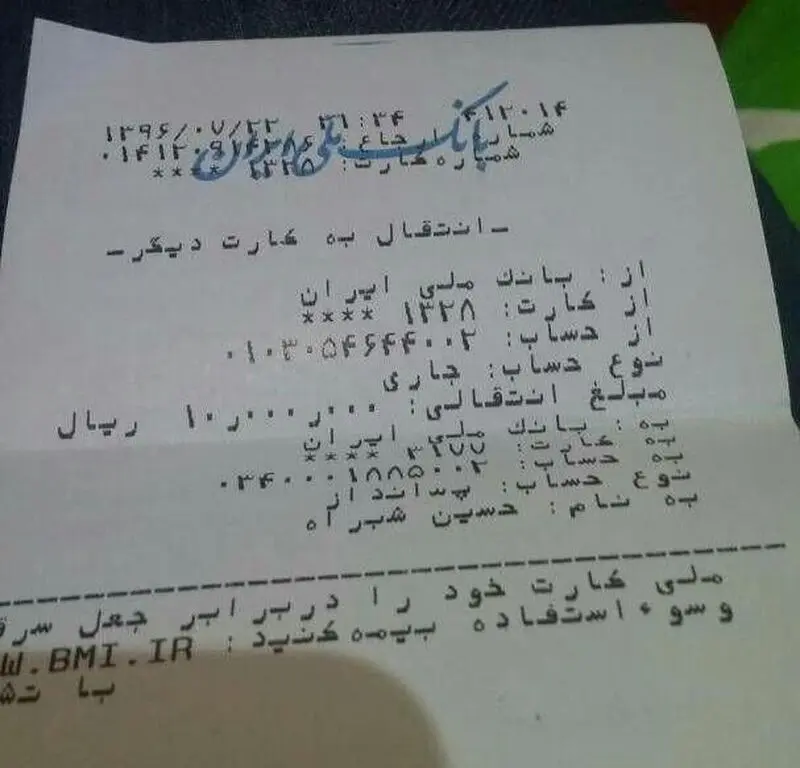 ۴۱۲۰۱۴ ۲۱:۳۴ ۱۳۹۶/۰۷/۲۲
شماره ارجاع:
شماره کارت: ****
بانک ملی ایران
-انتقال به کارت دیگر-
از: بانک ملی ایران
از کارت: ۱۳۲۸ ****
از حساب: ۰۱۰۳۰۵۴۶۴۴۰۰۲
نوع حساب: جاری
مبلغ انتقالی: ۱۰٫۰۰۰٫۰۰۰ ریال
به: بانک ملی ایران
به کارت: ۳۲۷۷ ****
به حساب: ۰۳۴۰۰۰۱۸۸۵۰۰۲
نوع حساب: پس‌انداز
به نام: حسین شبراه
ملی کارت خود را در برابر جعل سرق
وسوء استفاده بیمه کنید: W.BMI.IR
با تش